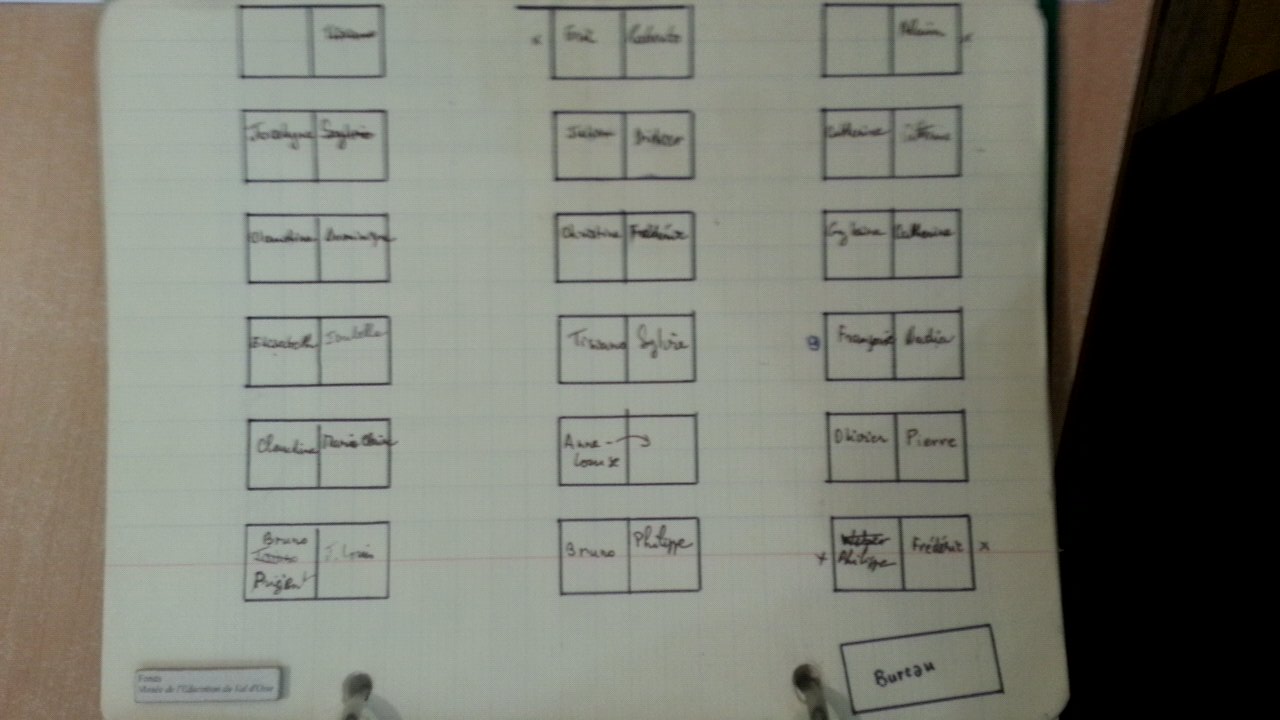 José Roberto
Jocelyne Sylvie
Didier
Catherine Catherine
Claudine Dominique
Christine Frédéric
Guylaine Catherine
Elisabeth Isabelle
Tiziano Sylvie
Françoise Nadia
Claudine Marie Claire
Anne-
Louise
Olivier Pierre
Bruno
Prigent
J. Louis
Bruno Philippe
x Philippe Frédéric x
Bureau
Fonds
Musée de l'Education du Val d'Oise